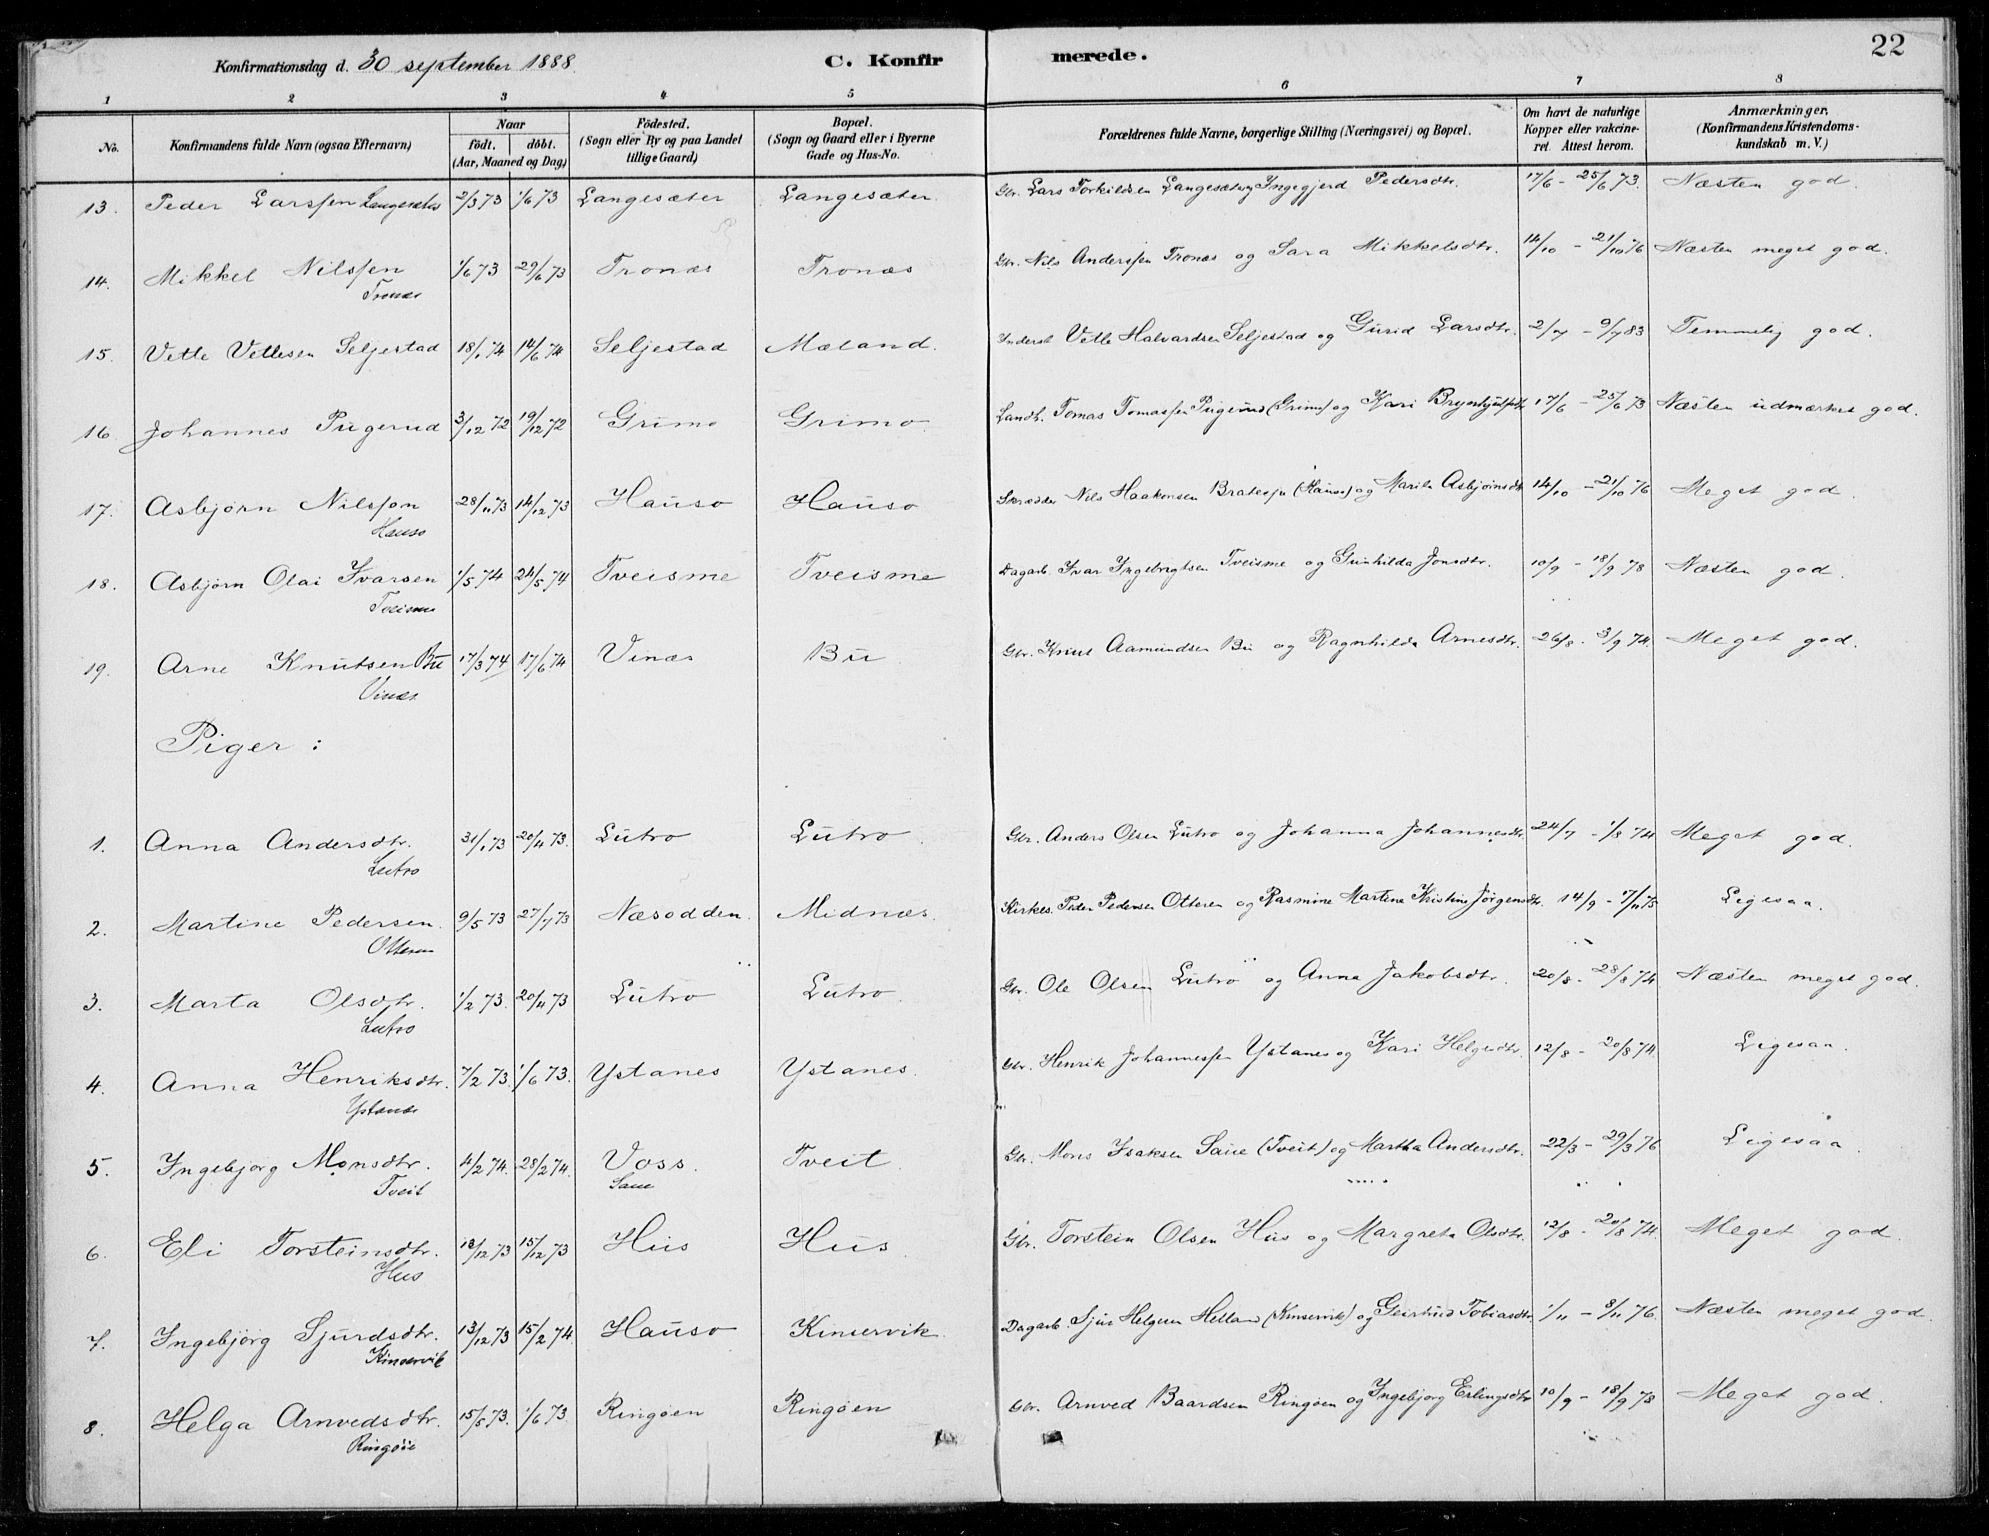 Konfirmationsdag d. 30 september 1888. C. Konfirmerede. 22
1 2 3 4 5 6 7 8
No. Konfirmandens fulde Navn (ogsaa Efternavn) Naar födt. döbt. (Aar, Maaned og Dag) Födested. (Sogn eller By og paa Landet tillige Gaard) Bopæl. (Sogn og Gaard eller i Byerne Gade og Hus-No. Forældrenes fulde Navne, borgerlige Stilling (Næringsvei) og Bopæl. Om havt de naturlige Kopper eller vakcineret. Attest herom. Anmærkninger, (Konfirmandens Kristendomskundskab m. V.)
13. Peder Larssen Langesæter 2/3 73 1/6 73 Langesæter Langesæter. Gbr. Lars Torkildsen Langesæter og Ingegjerd Pedersdtr. 17/6 - 25/6 73. Næsten god.
14. Mikkel Nilssen Tronæs 1/6 73 29/6 73 Tronæs Tronæs Gbr. Nils Anderssen Tronæs og Sara Mikkelsdtr. 14/10 - 21/10 76 Næsten meget god.
15. Vetle Vetlesen Seljestad 18/1 74 14/6 74 Seljestad Mæland. Inderst Vetle Halvardsen Seljestad og Gurid Larsdtr. 2/7 - 9/7 83 Temmelig god.
16. Johannes Pugerud 3/12 72 19/12 72 Grimo Grimo. Landh. Tomas Tomassen Pugerud (Grimo) og Kari Brynhjulfsdtr 17/6 - 25/6 73 Næsten udmærket god.
17. Asbjörn Nilssen Hauso 28/11 73 14/12 73 Hauso Hauso Skrædder Nils Haakonsen (Hauso) og Marita Asbjörnsdtr 14/10 - 21/10 76 Meget god.
18. Asbjörn Olai Ivarsen Tveisme 1/5 74 24/5 74 Tveisme Tveisme Dagarb. Ivar Ingebrigtsen Tveisme og Gunhilda Jonsdtr. 10/9 - 18/9 78 Næsten god.
19. Arne Knutsen Bu Vinæs 17/3 74 17/6 74 Vinæs Bu Gbr. Knut Aamundsen Bu og Ragnhilda Arnesdtr. 26/8 - 3/9 74. Meget god.
Piger:
1. Anna Andersdtr. Lutro 31/1 73 20/4 73. Lutro Lutro. Gbr. Anders Olsen Lutro og Johanna Johannesdtr. 24/7 - 1/8 74 Meget god.
2. Martine Pedersen. Otteren 9/5 73 27/7 73 Næsodden. Midnæs. Kirkes. Peder Pedersen Otteren og Rasmine Martine Kristine Jörgensdtr. 14/9 - 7/11 75 Ligesaa.
3. Marta Olsdtr. Lutro 1/2 73. 20/4 73 Lutro Lutro. Gbr. Ole Olsen Lutro og Anna Jakobsdtr. 20/8 - 28/8 74 Næsten meget god.
4. Anna Henriksdtr. Ystanes 7/2 73. 1/6 73. Ystanes Ystanes. Gbr. Henrik Johannessen Ystanes og Kari Helgesdtr. 12/8 - 20/8 74. Ligesaa.
5. Ingebjörg Monsdtr. Tveit 4/2 74. 28/2 74. Voss. Saue Tveit. Gbr. Mons Isaksen Saue (Tveit) og Martha Andersdtr. 22/3 - 29/3 76 Ligesaa.
6. Eli Torsteinsdtr. Hus 13/12 73 15/12 73 Hus Hus. Gbr. Torstein Olsen Hus og Margreta Olsdtr. 12/8 - 20/8 74. Meget god.
7. Ingebjörg Sjurdsdtr. Kinservik 13/12 73 15/2 74. Hauso Kinservik. Dagarb. Sjur Helgesen Helland (Kinservik) og Geirtrud Tobiasdtr. 1/11 - 8/11 76. Næsten meget god.
8. Helga Arnvedsdtr. Ringöie 15/5 73. 1/6 73. Ringöen Ringöen Gbr. Arnved Baardsen Ringöen og Ingebjorg Erlingsdtr 10/9 - 18/9 78 Meget god.